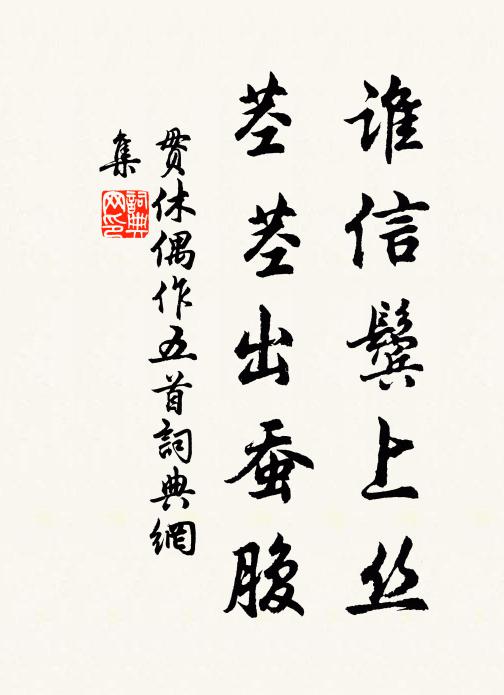 谁信鬓上丝
茎茎出蚕腹
贯休偶作五首詞典網
集
詞典网印